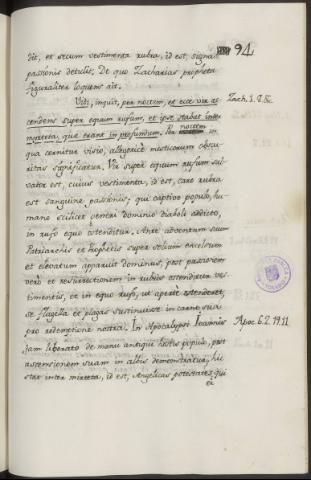 94
dit, et secum vestimenta rubra, id est, signa
passionis detulit. De quo Zacharias propheta
figuraliter loquens ait.
Vidi, inquit, per noctem, et ecce vir as Zach. 1. V. 8.
cendens super equum rufum, et ipse stabat inter
myrteta, quæ erant in profundum. Per noctem in
qua cernitur visio, allegoricè misticorum obscu
ritas significatur. Vir super equum rufum sal
vator est, cuius vestimenta, id est, caro rubra
est sanguine passionis; qui captivo populo, hu-
mano scilicet generi dominio diaboli addicto,
in rufo equo ostenditur. Ante adventum suum
Patriarchis et prophetis super solium excelsum
et elevatum apparuit dominus, post passionem
verò et resurrectionem in rubris ostenditur ves-
timentis, et in equo rufo, ut apertè ostenderet,
se flagella et plagas sustinuisse in carne sua
pro redemptione nostra. In Apocalypsi Joannis Apoc. 6. 2. 19. 11
jam liberato de manu antiqui hostis populo, post
ascensionem suam in albis demonstratur, hic
stat inter mirteta, id est, Angelicas potestates, qui